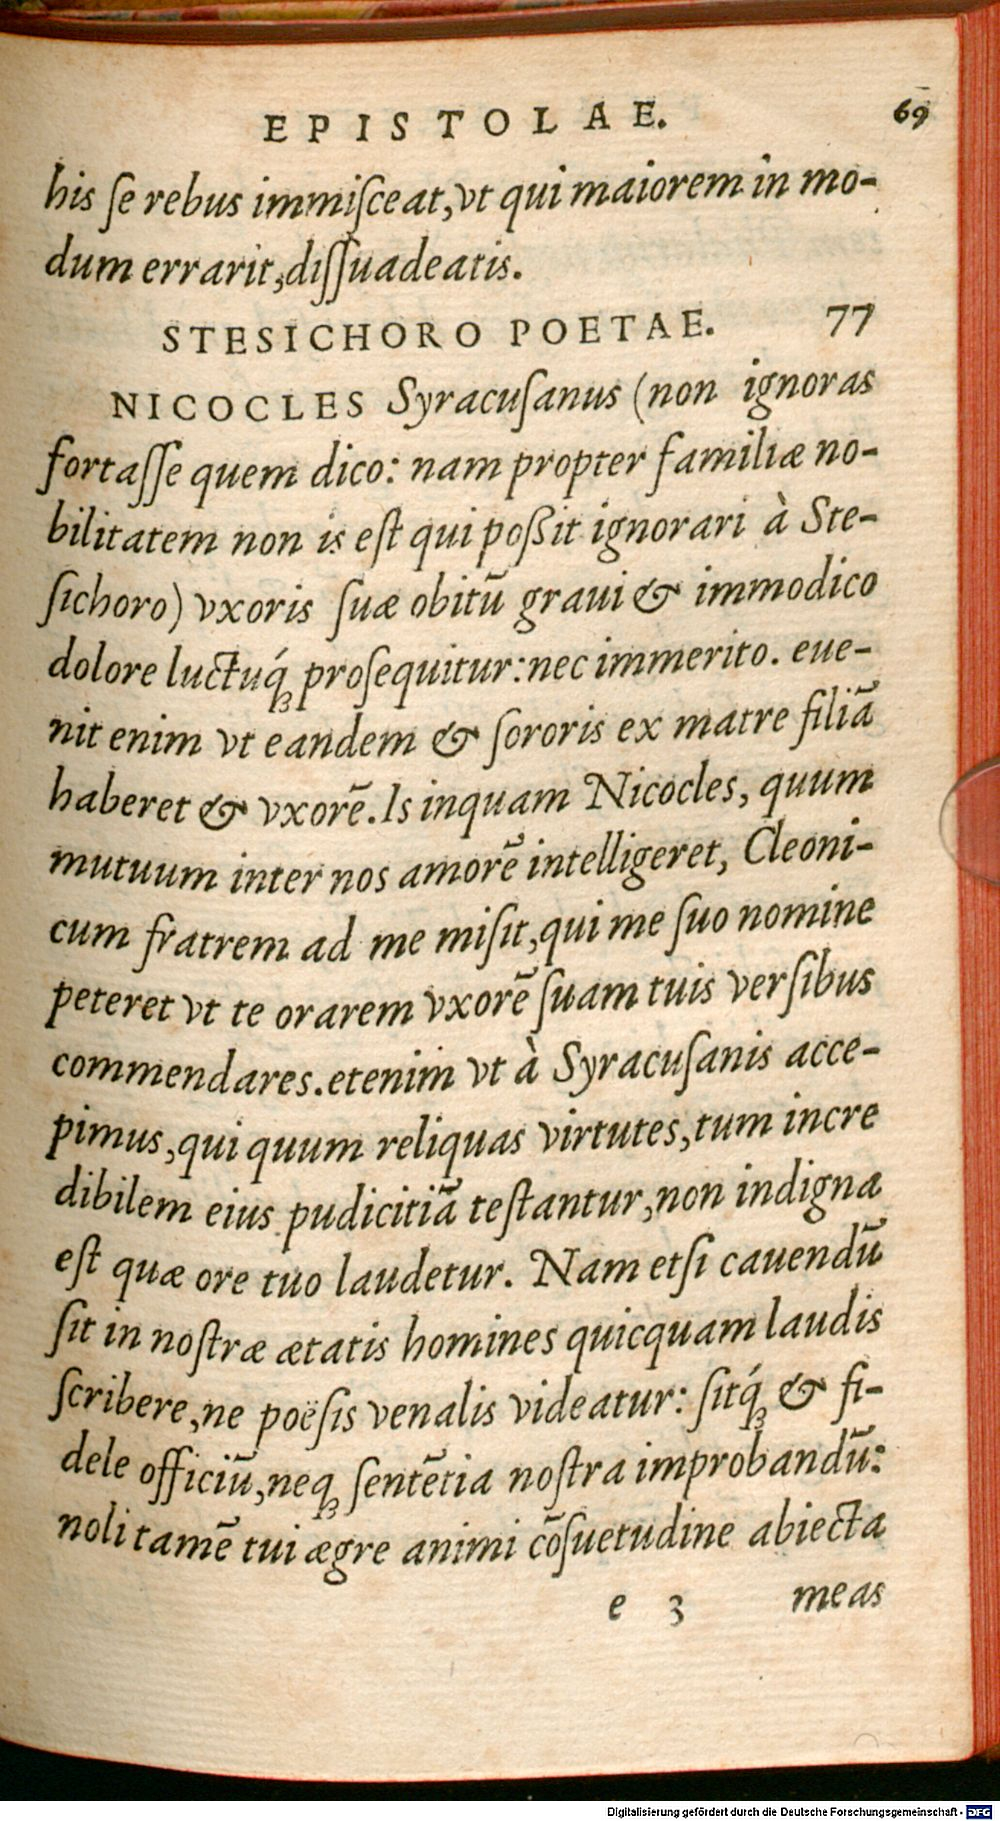 EPISTOLAE. 69
his ſe rebus immiſceat, vt qui maiorem in mo-
dum errarit, diſſuadeatis.
STESICHORO POETAE. 77
NICOCLES Syracuſanus (non ignoras
fortaſſe quem dico: nam propter familiæ no-
bilitatem non is eſt qui poßit ignorari à Ste-
ſichoro) vxoris ſuæ obitū graui & immodico
dolore luctuq́ꝫ proſequitur: nec immerito. eue-
nit enim vt eandem & ſororis ex matre filiā
haberet & vxorē. Is inquam Nicocles, quum
mutuum inter nos amorē intelligeret, Cleoni-
cum fratrem ad me miſit, qui me ſuo nomine
peteret vt te orarem vxorē ſuam tuis verſibus
commendares. etenim vt à Syracuſanis acce-
pimus, qui quum reliquas virtutes, tum incre
dibilem eius pudicitiā teſtantur, non indigna
eſt quæ ore tuo laudetur. Nam etſi cauendū
ſit in noſtræ ætatis homines quicquam laudis
ſcribere, ne poëſis venalis videatur: ſitq́ꝫ & fi-
dele officiū, neqꝫ ſentētia noſtra improbandū:
noli tamē tui ægre animi cōſuetudine abiecta
e 3 meas
Digitalisierung gefördert durch die Deutsche Forschungsgemeinschaft - DFG